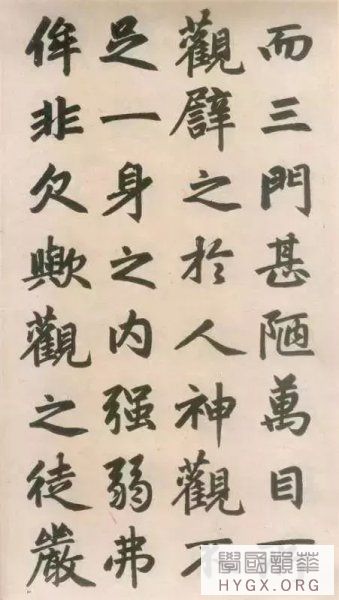 而三門甚陋萬目
觀譬之於人神觀不
足一身之内强弱弗
侔非欠歟觀之徒嚴
學國韻華
HYGX.ORG